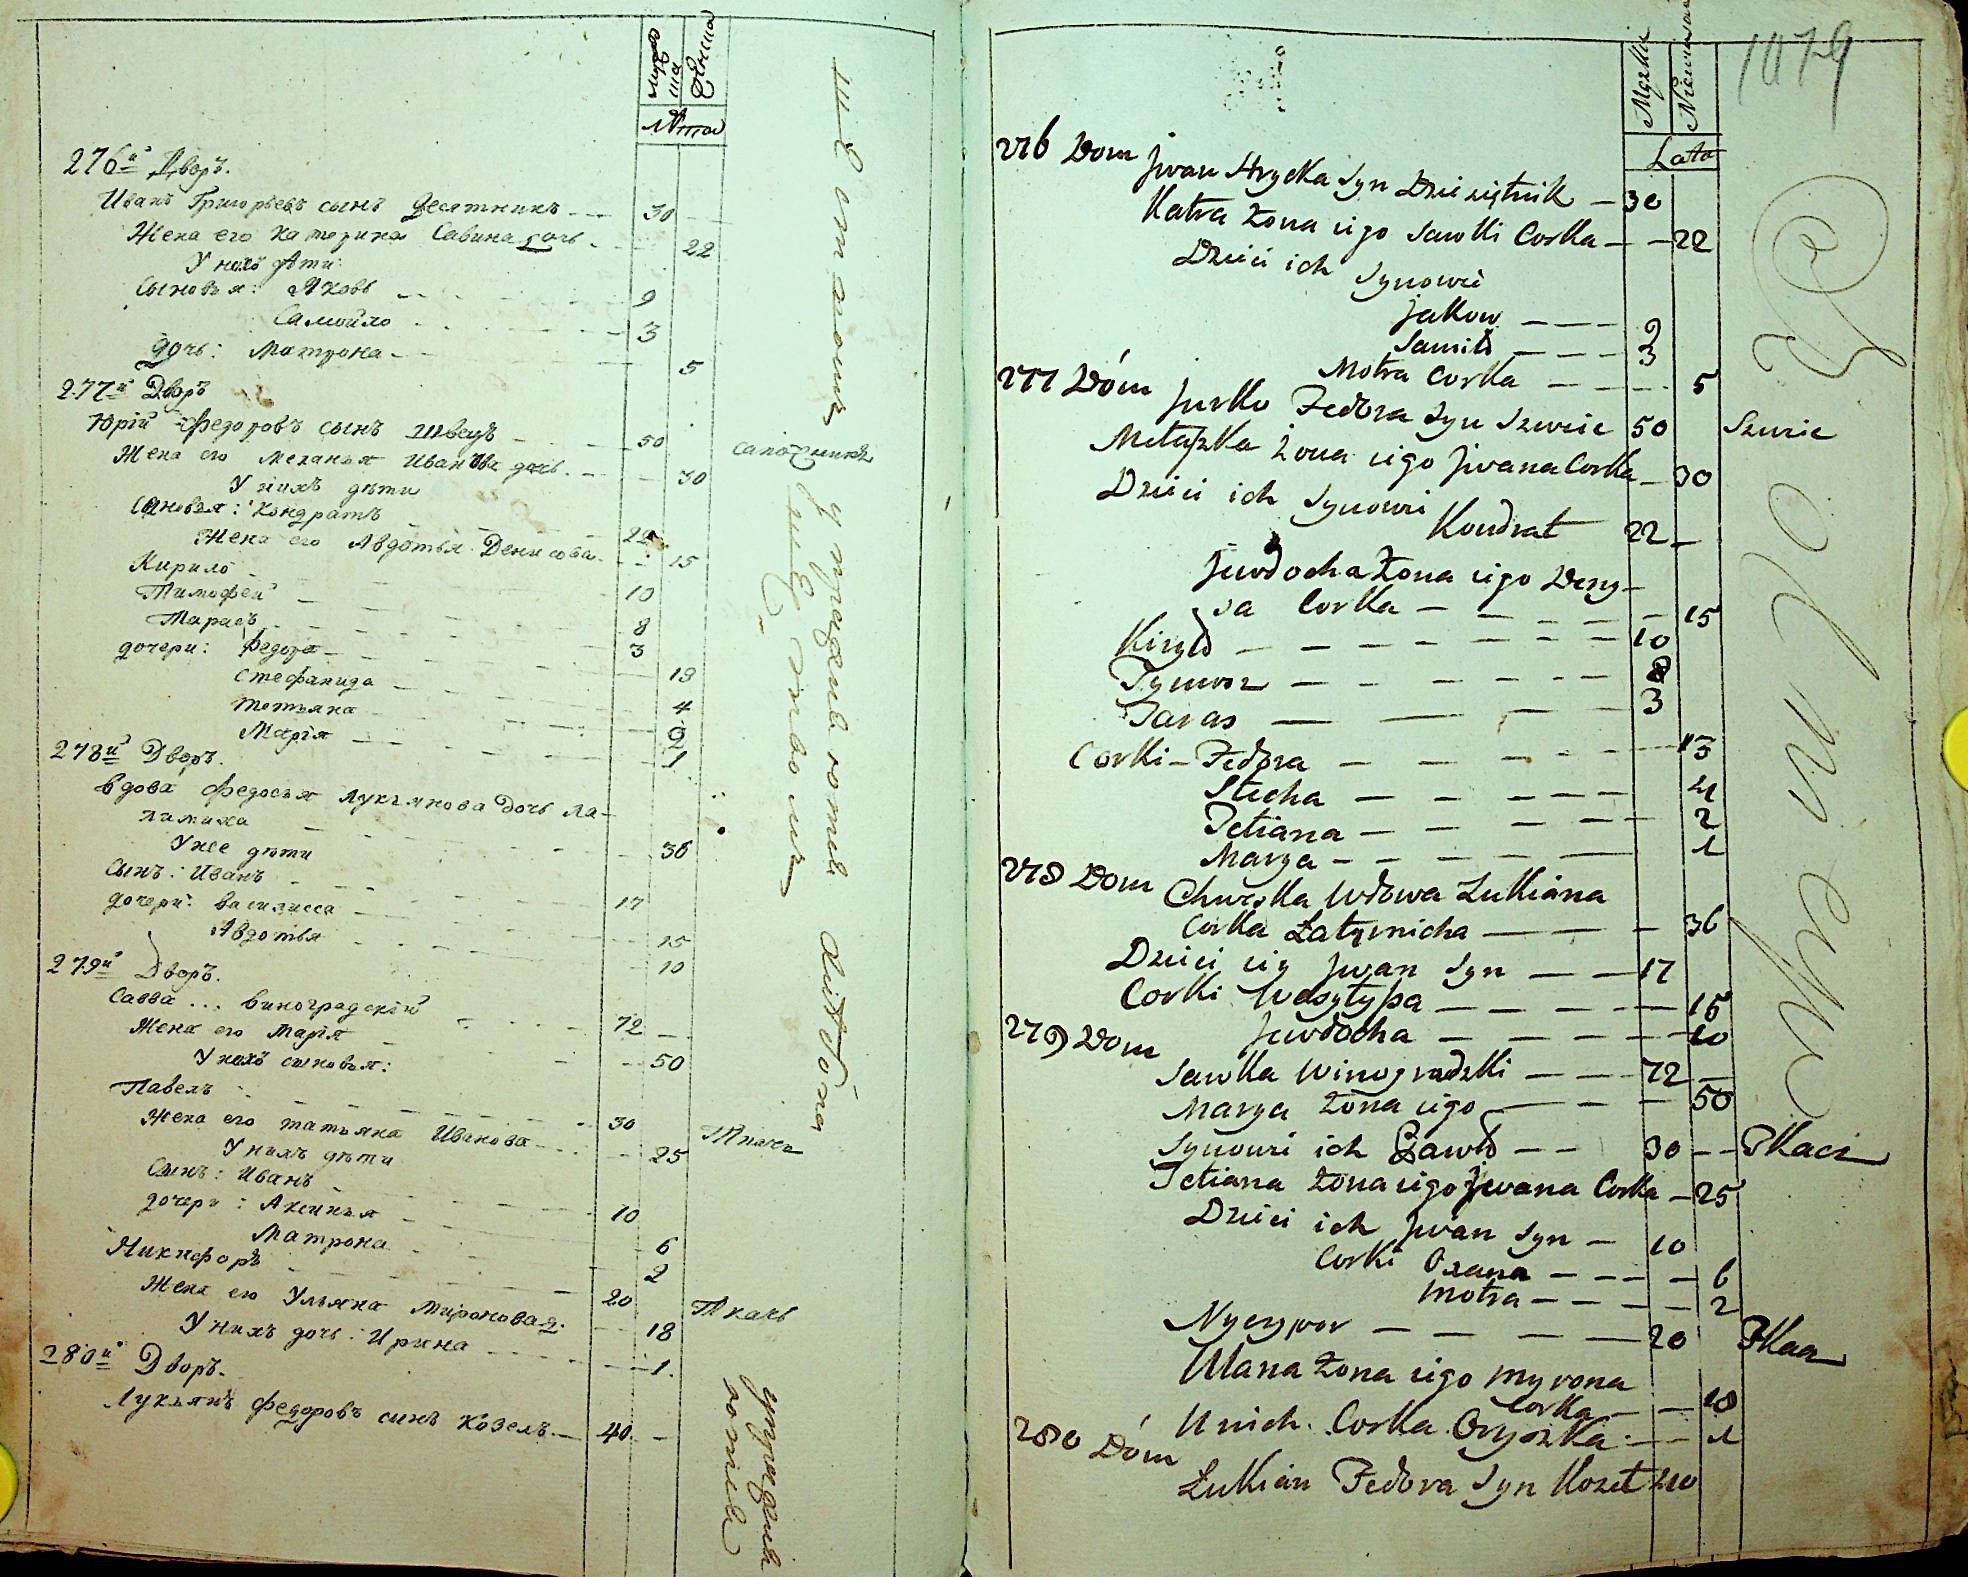 мужеска
женска
лѣта
276й Дворъ.
Иванъ Григорьевъ сынъ Десятникъ 30
Жена его Катерина Савина дочь 22
У нихъ дѣти:
Сыновья: Яковъ 9
Самойло 3
Дочь: Матрона 5
277й Дворъ
Юрій Федоровъ сынъ Швецъ 50 сапожникъ
Жена его Меланья Иванова дочь 30
У нихъ дѣти
Сыновья: Кондратъ 22
Жена его Авдотья Денисова 15
Кирило 10
Тимофей 8
Тарасъ 3
дочери: Федора 13
Стефанида 4
Татьяна 2
Марія 1
278й Дворъ.
Вдова Федосья Лукьянова дочь Ла-
тиниха 36
У нее дѣти
Сынъ: Иванъ 17
дочери: Василисса 15
Авдотья 10
279й Дворъ.
Савва ... Виноградскій 72
Жена его Марія 50
У нихъ сыновья:
Павелъ 30 Ткачь
Жена его татьяна Иванова 25
У нихъ дѣти
Сынъ: Иванъ 10
дочери: Аксинья 6
Матрона 2
Никифоръ 20 Ткачь
Жена его Ульяна Миронова д. 18
У нихъ дочь: Ирина 1.
280й Дворъ.
Лукьянъ Федоровъ сынъ Козелъ 40.
1079
Męzka
Niewieska
Lata
276 Dom Jwan Hrycka Syn Dziesiętnik 30
Katra Żona iego Sawki Corka 22
Dzieci ich Synowie
Jakow 9
Samiło 3
Motra Corka 5
277 Dóm Jurko Fedora Syn Szweic 50 Szwic
Melaszka Żona iego Jwana Corka 30
Dzieci ich Synowi
Kondrat 22
Jewdocha Żona iego Deny-
sa Corka 15
Kiryło 10
Tymosz 8
Taras 3
Corki Fedora 13
Stecha 4
Tetiana 2
Marya 1
278 Dom Chweska Wdowa Lukiana
Corka Łatynicha 36
Dzieci iey Jwan Syn 17
Corki Wasylysa 15
Jewdocha 10
279 Dom
Sawka Winogradzki 72
Marya Żona iego 50
Synowi ich Pawło 30 Tkacz
Tetiana Żona iego Jwana Corka 25
Dzieci ich Jwan Syn 10
Corki Oxana 6
Motra 2
Nyczypor 20 Tkacz
Ulana Żona iego Myrona
Corka 18
U nich Corka Oryszka 1
280 Dóm
Łukian Fedora Syn Kozeł 40